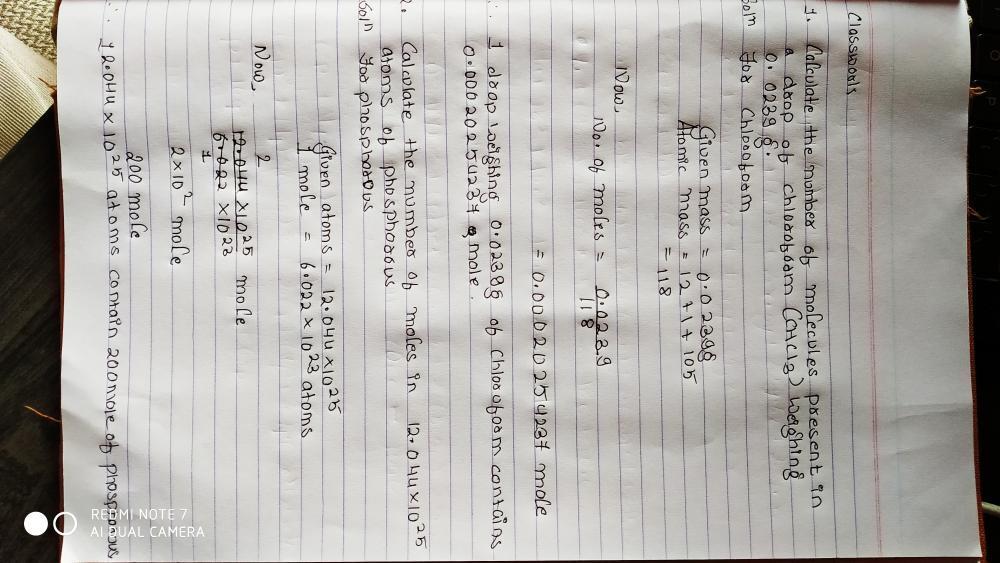 Classwork
1. Calculate the number of molecules present in
a drop of chloroform (CHCl3) weighing
0.0239 g.
Soln For Chloroform
Given mass = 0.0239g
Atomic mass = 12 + 1 + 105
= 118
Now,
No. of moles = 0.0239
118
= 0.00020254237 mole
∴ 1 drop weighing 0.0239g of chloroform contains
0.00020254237 mole.
2. Calculate the number of moles in 12.044×10^25
atoms of phosphorous
Soln For phosphorous
Given atoms = 12.044×10^25
1 mole = 6.022 × 10^23 atoms
Now,
2
12.044 × 10^25 mole
6.022 × 10^23
1
2 × 10^2 mole
200 mole
∴ 12.044 × 10^25 atoms contain 200 mole of phosphorous
REDMI NOTE 7
AI DUAL CAMERA